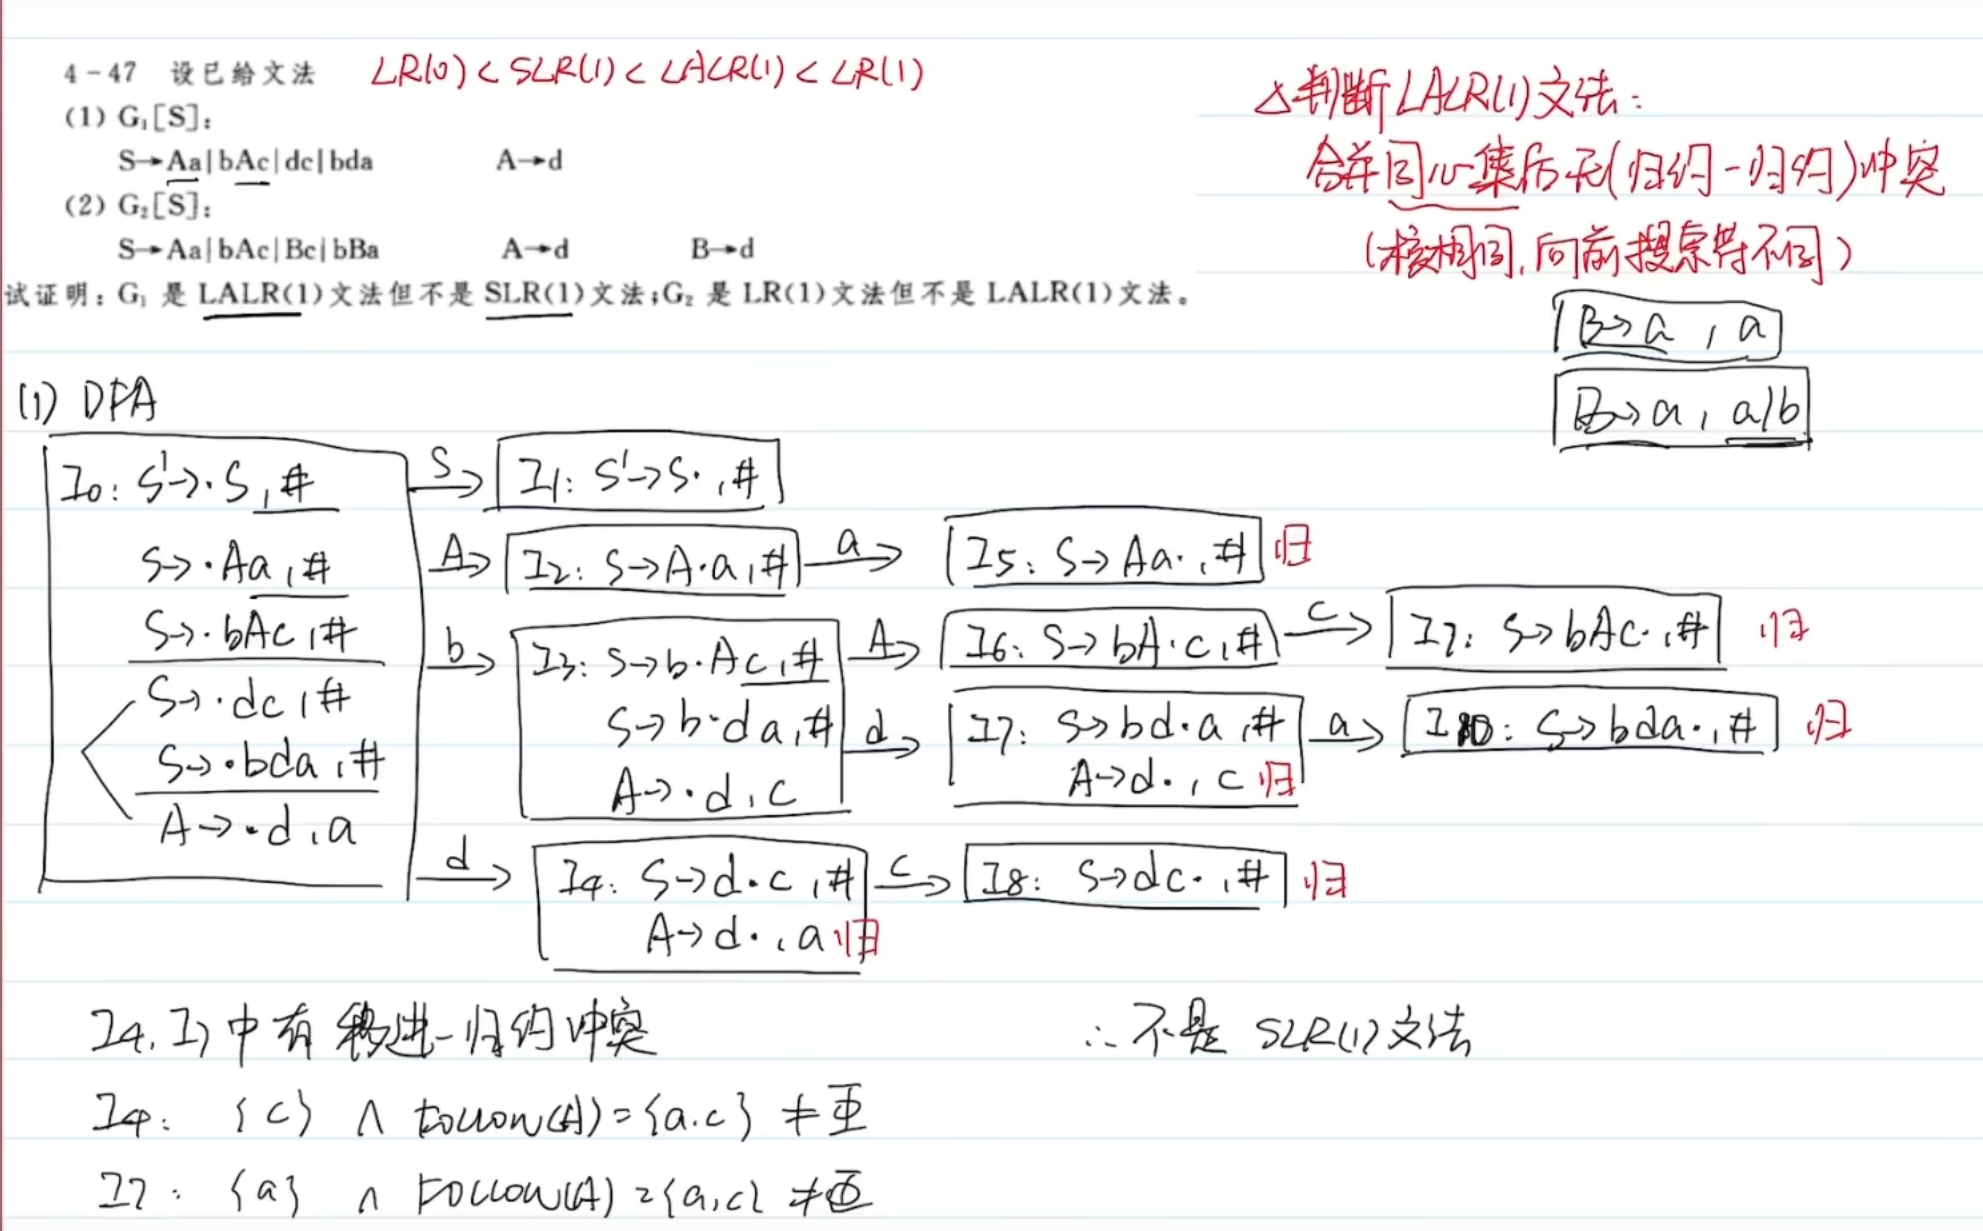 4-47 设已给文法 LR(0) < SLR(1) < LALR(1) < LR(1)
(1) G₁[S]:
S→Aa|bAc|dc|bda A→d
(2) G₂[S]:
S→Aa|bAc|Bc|bBa A→d B→d
试证明:G₁ 是 LALR(1)文法但不是 SLR(1)文法;G₂ 是 LR(1)文法但不是 LALR(1)文法。
△判断LALR(1)文法:
合并同心集后无(归约-归约)冲突
(核相同,向前搜索符不同)
B→a , a
B→a , a/b
(1) DFA
I0: S'→·S,#
S→·Aa,#
S→·bAc,#
S→·dc,#
S→·bda,#
A→·d,a
S
I1: S'→S·,#
A
I2: S→A·a,#
a
I5: S→Aa·,# 归
b
I3: S→b·Ac,#
S→b·da,#
A→·d,c
A
I6: S→bA·c,#
c
I7: S→bAc·,# 归
d
I7: S→bd·a,#
A→d·,c 归
a
I10: S→bda·,# 归
d
I4: S→d·c,#
A→d·,a 归
c
I8: S→dc·,# 归
I4.I7中有移进-归约冲突 ∴不是 SLR(1)文法
I4: {c} ∩ Follow(A)={a.c} ≠ 空
I7: {a} ∩ Follow(A)={a,c} ≠空